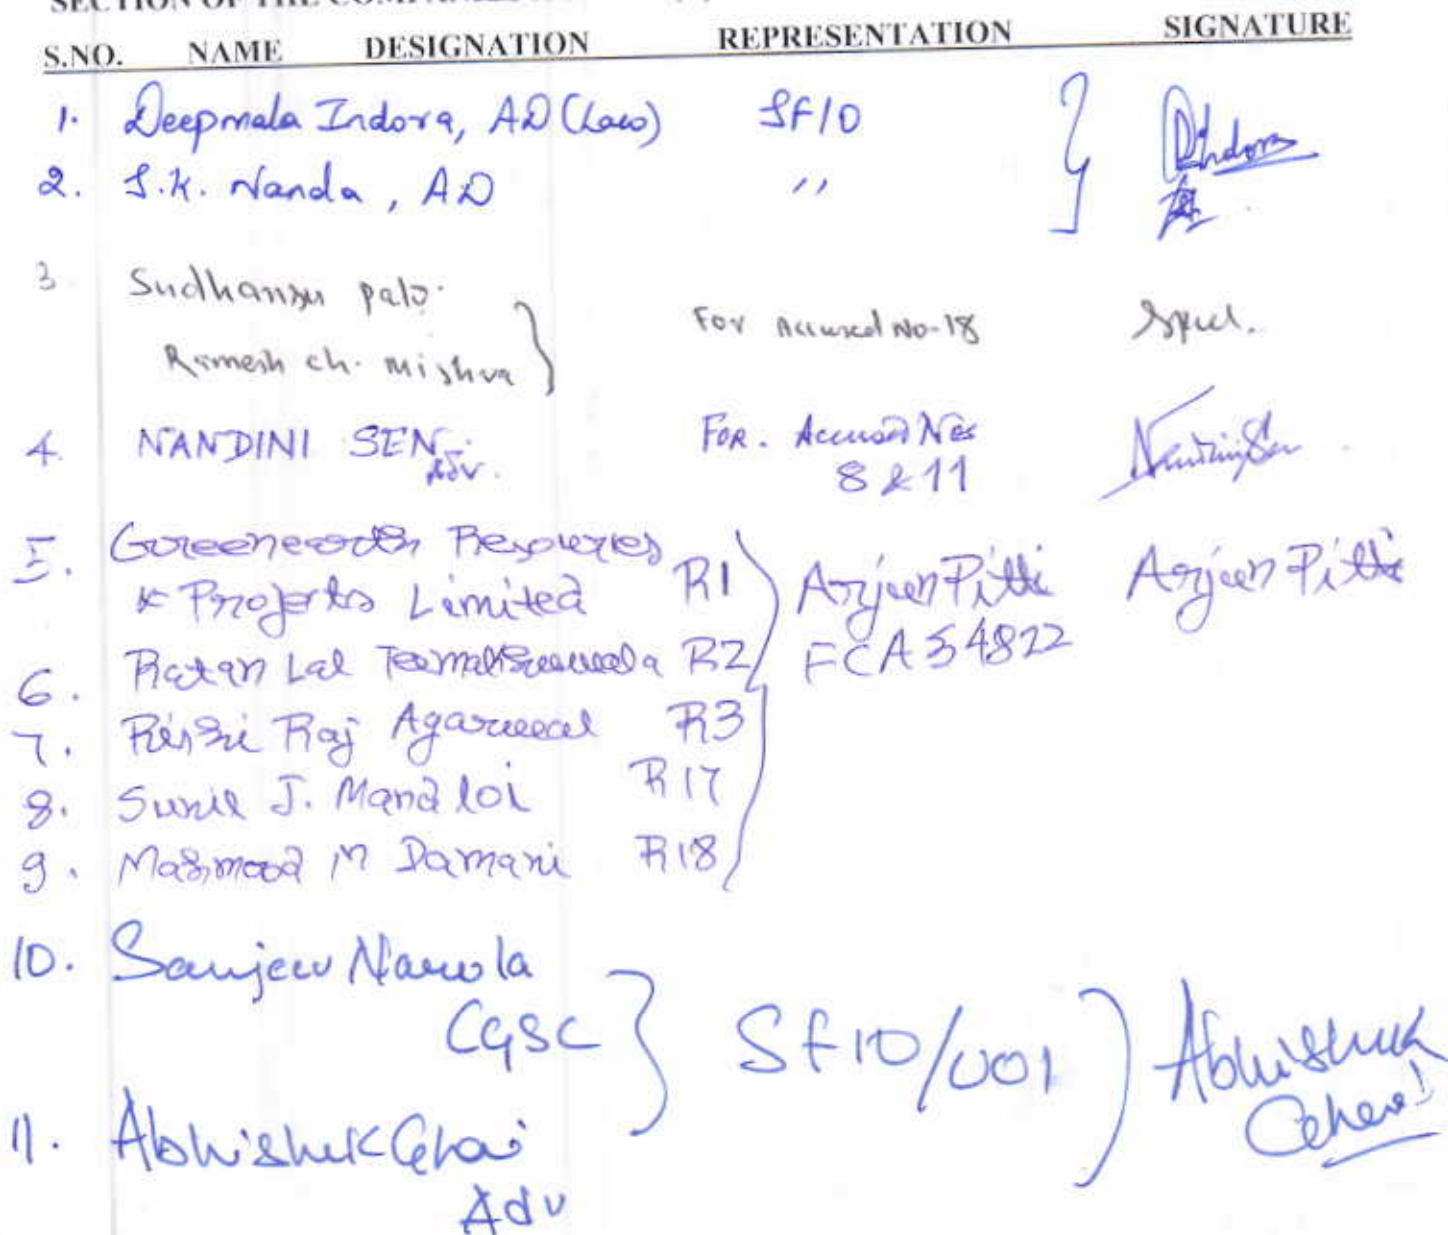 SECTION OF THE COMPANIES
S.NO. NAME DESIGNATION REPRESENTATION SIGNATURE
1. Deepmala Indora, AD (Law) SFIO Indora
2. S.K. Nanda, AD "
3 Sudhansu palo.
Ramesh ch. Mishra For Accused No-18
4. NANDINI SEN Adv. For. Accused Nos Nandini Sen
8 & 11
5. Greenearth Resources
& Projects Limited R1 Arjun Pitti Arjun Pitti
6. Ratan Lal R2 FCA 54822
7. Rishi Raj Agarwal R3
8. Sunil J. Mandloi R17
9. Mahmood M Damani R18
10. Sanjeev Narula
CGSC SFIO/UOI Abhishek
Ghai
11. Abhishek Ghai
Adv